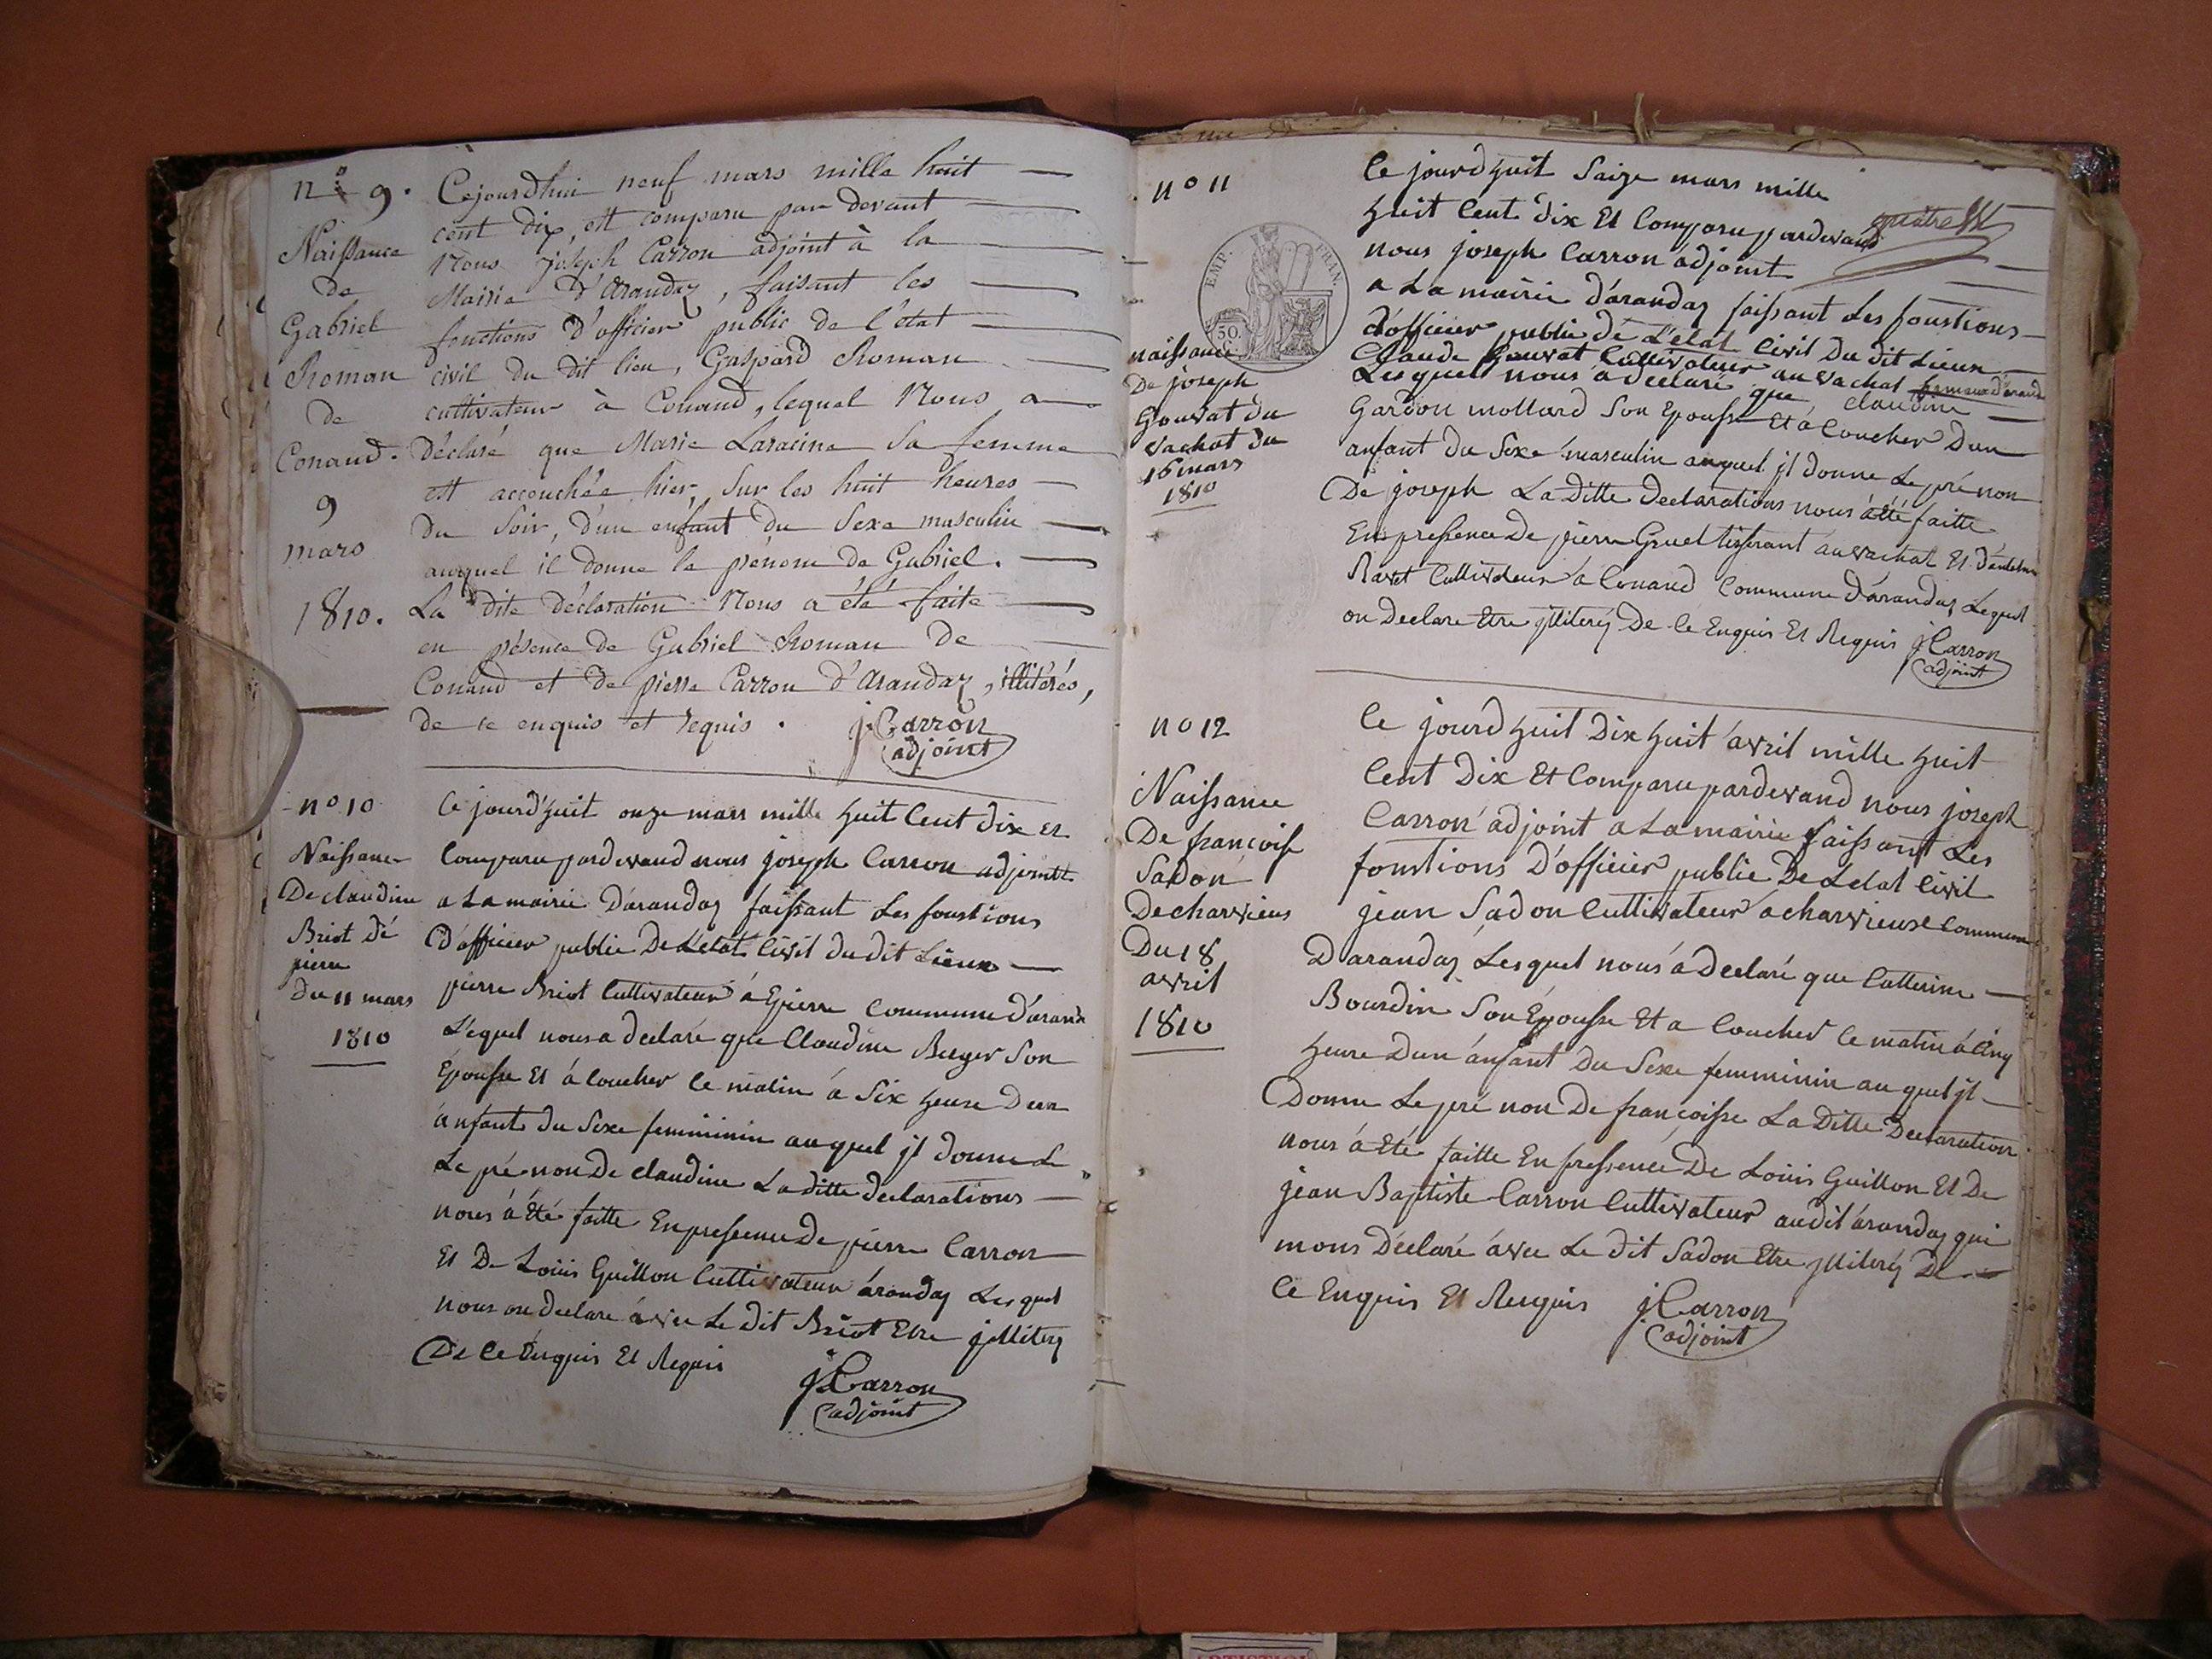 n° 9.
Naissance
de
Gabriel
Roman
de
Conand.
9
mars
1810.
Cejourdhui neuf mars mille huit
cent dix, est comparu par devant
Nous Joseph Carron adjoint à la
Mairie d'Arandaz, faisant les
fonctions d'officier public de l'état
civil du dit lieu, Gaspard Roman
cultivateur à Conand, lequel Nous a
déclaré que Marie Laracine sa femme
est accouchée hier, sur les huit heures
du soir, d'un enfant du sexe masculin
auquel il donne le prénom de Gabriel.
La dite déclaration Nous a été faite
en présence de Gabriel Roman de
Conand et de pierre Carron d'Arandaz, illitérés,
de ce enquis et requis.
j. Carron
adjoint
n° 10
Naissance
De claudine
Briot dé
pierre
Du 11 mars
1810
Ce jourd'huit onze mars mille huit Cent dix Et
Comparu pardevand nous joseph Carron adjoint
a La mairie D'arandaz faissant Les fonstions
D'officier public De L'état Civil du dit Lieux
pierre Briot Cultivateur á Epierre Commune d'arand
L'equel nous a declaré que Claudine Berger Son
Epousse Et á Coucher Ce matin á Six heure Dun
ánfant du Sexe femininin auquel jl donne Le
Le pré non De claudine La ditte declarations
nous á Eté faitte En pressence De pierre Carron
Et De Loüis Guillon Cultivateur árandaz Les quel
nous on declaré ávec Le dit Briot Etre jlliterez
De Ce Enquis Et Requis
j. Carron
adjoint
n° 11
EMP. FRAN.
50.
naissance
De joseph
Gouvat du
vachat du
16 mars
1810
Ce jourdhuit Saize mars mille
huit Cent dix Et Comparu pardevand
quatre
nous joseph Carron adjoint
a La mairie d'arandaz faissant Les fonstions
d'officier public de L'état Civil Du dit Lieux
Claude Gouvat Cultivateur au vachat
Les quel nous á declaré que claudine
Gardon mollard Son Epousse Et á Coucher Dun
anfant du Sexe masculin auquel jl donne Le pré non
De joseph La Ditte declarations nous á été faitte
En pressence De pierre Gruel tisserant au vachat Et
Ravet Cultivateur á Conand Commune d'árandaz Lequel
on Declare Etre jlliterez De Ce Enquis Et Requis
j Carron
adjoint
n° 12
Naissance
De françoise
Sadon
De charvieus
Du 18
avril
1810
Ce jourdhuit Dix huit avril mille huit
Cent Dix Et Comparu pardevand nous joseph
Carron adjoint a La mairie faissant Les
fonstions D'officier public De Letat Civil
jean Sadon Cultivateur á charvieuse Commune
Darandaz Lesquel nous á Declaré que Catterine
Bourdin Son Epousse Et a Coucher Ce matin á Cinq
heure Dun ánfant Du Sexe femminin au quel jl
Donne Le pré non De françoisse La Ditte Declaration
nous á Eté faitte En pressence De Loüis Guillon Et De
jean Baptiste Carron Cultivateur audit árandaz qui
mons Déclaré ávec Le dit Sadon Etre jlliterez De
Ce Enquis Et Requis
j Carron
adjoint